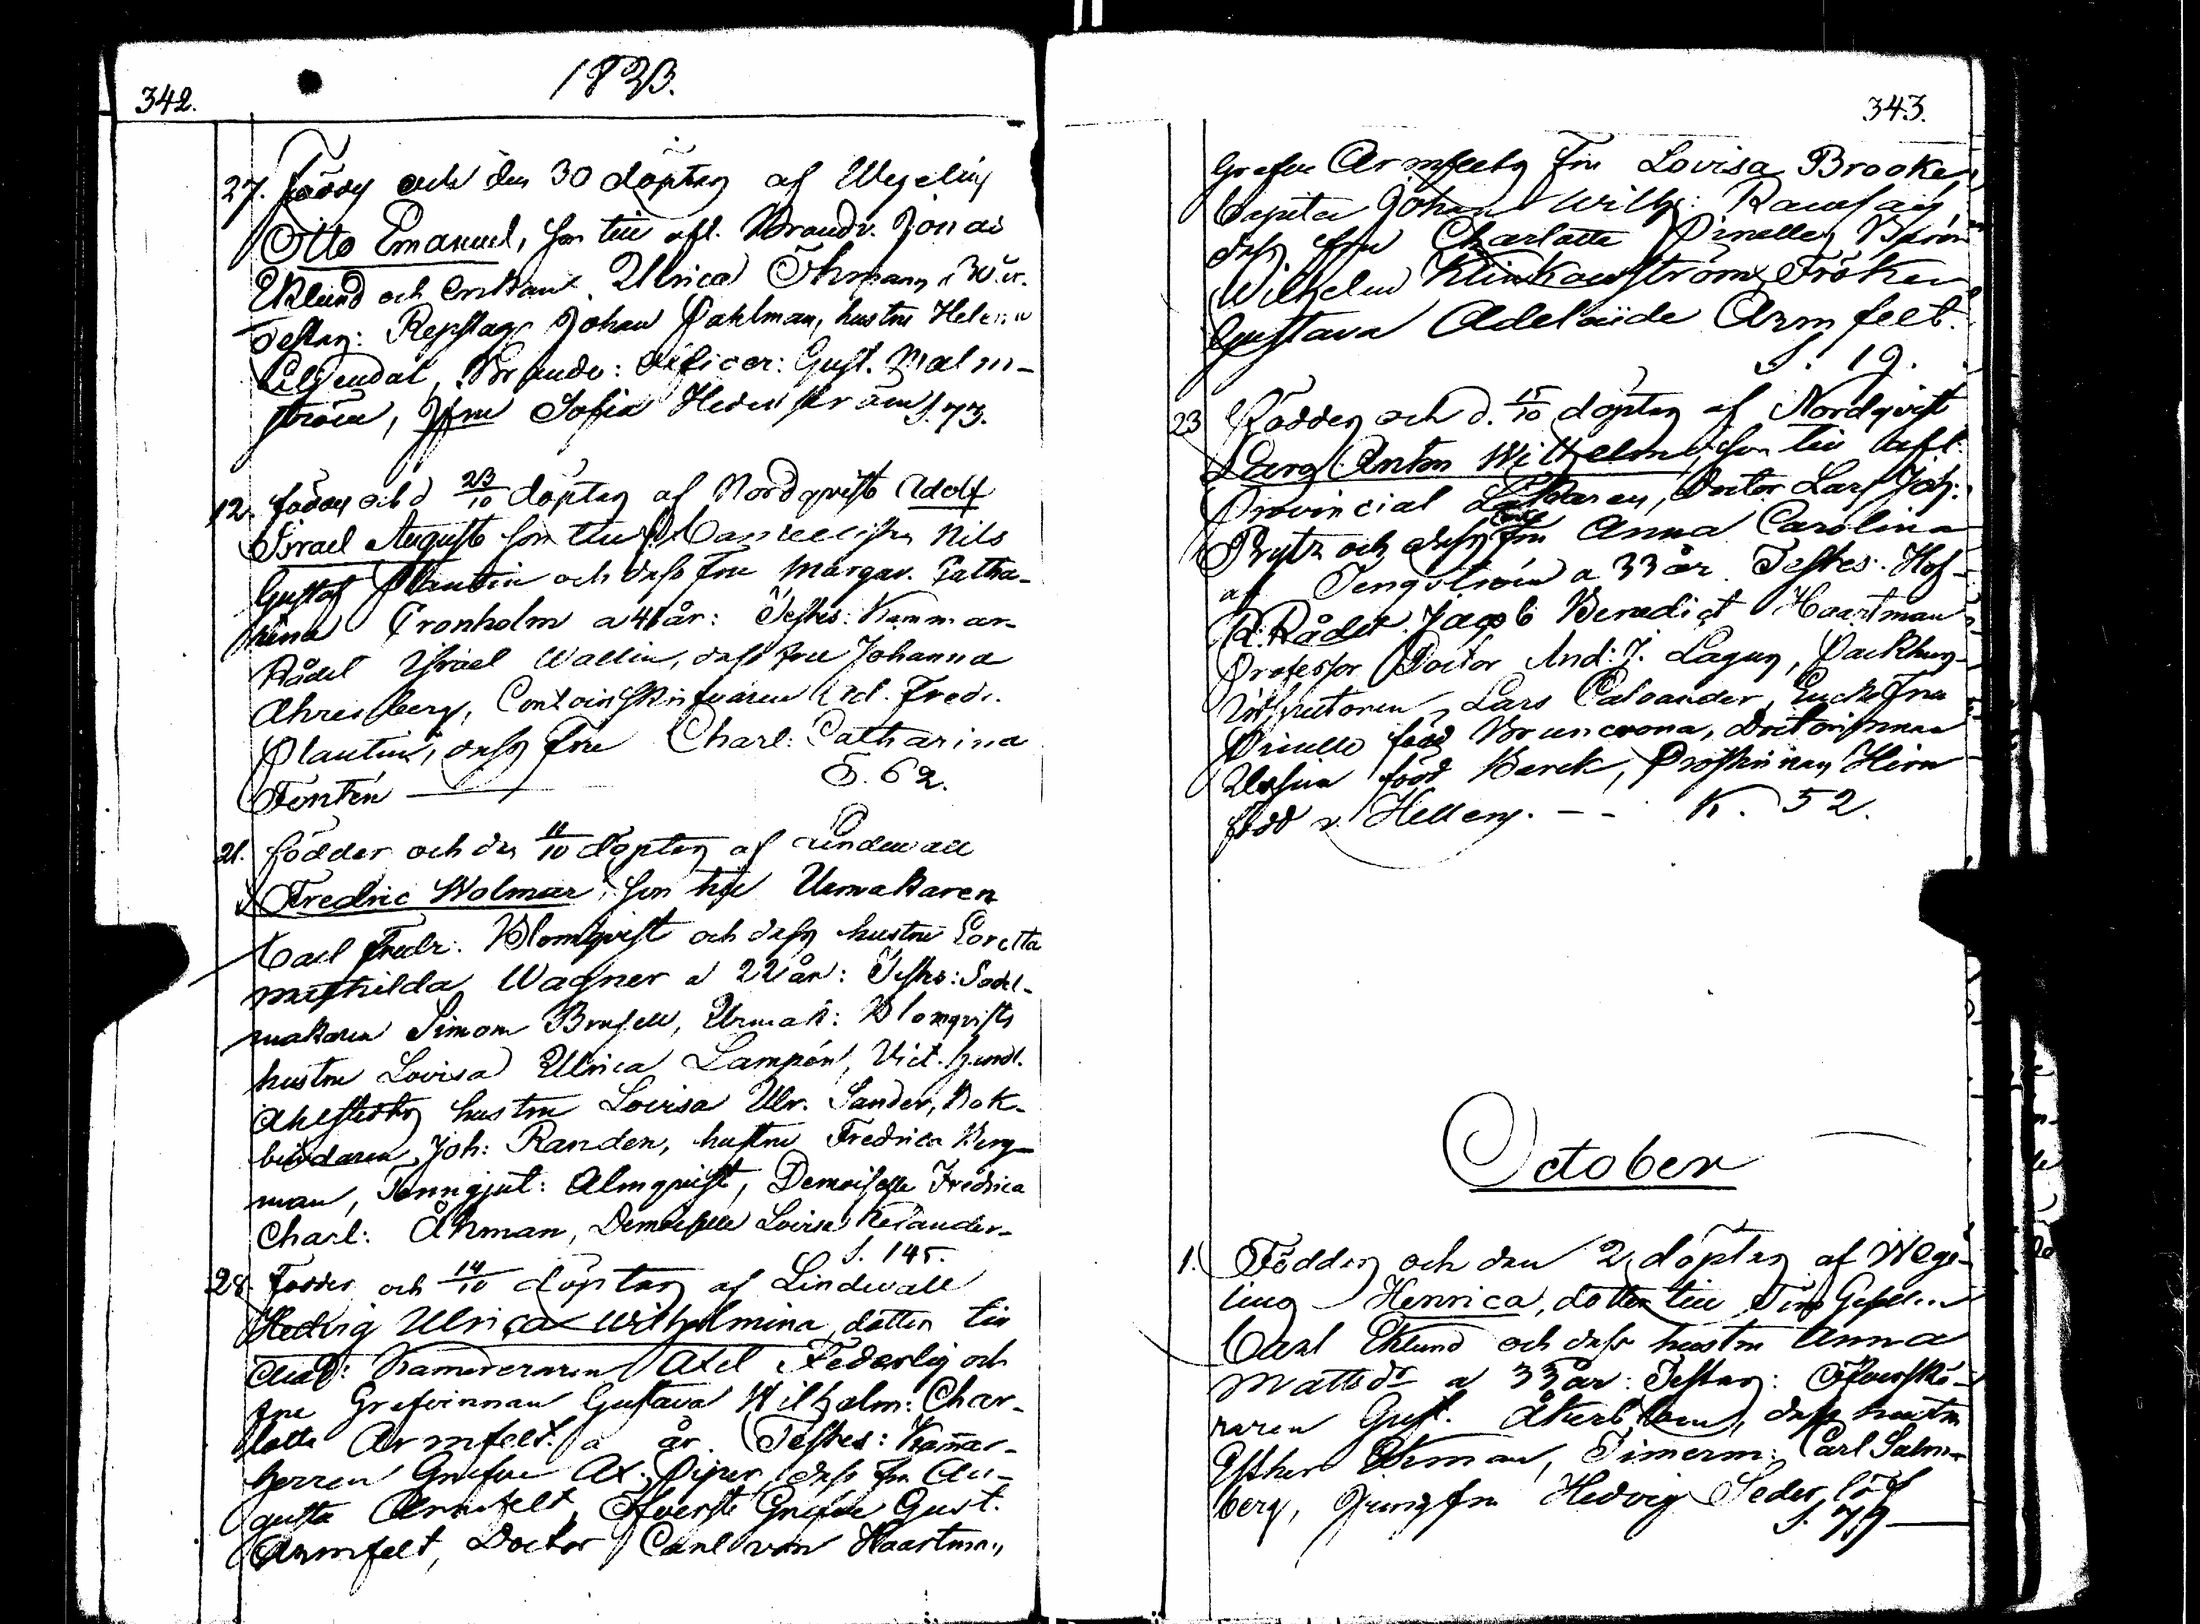 342.
1823.
27. född och den 30 döpter af Wegelius
Otto Emanuel, son till afl. Brandv. Jonas
Eklund och enkan Ulrica Öhman 30 år.
Testes: Repslag. Johan Dahlman, hustru Helena
Liljendal, Brandv: officer: Gust. Malm-
ström, Jfru Sofia Hedenström S. 73.
12. föddes och d 23/10 döpter af Nordqvist Adolf
Israel August son till Cancellisten Nils
Gustaf Plantin och dess Fru Margar. Catha-
rina Cronholm a 41 år: Testes: Kammar-
Rådet Israel Wallin, dess fru Johanna
Ahrenberg, Contoirskrifvaren Fredr.
Plantin, dess Fru Charl: Catharina
Tentén S. 62.
21. födder och den 11/10 döpter af Lindewall
Fredric Wolmar, son till Urmakaren
Carl Fredr. Blomqvist och dess hustru Loretta
Mathilda Wagner a 22 år: Testes: Sadel-
makaren Simon Brusell, Urmak: Blomqvists
hustru Lovisa Ulrica Lampén, Vict. handl.
Ahlstedts hustru Lovisa Ulr. Sander, Bok-
bindaren Joh: Randen, hustru Fredrica Berg-
man, Tenngjut: Almqvist, Demoiselle Fredrica
Charl: Åhman, Demoiselle Lovisa Kelander-
S. 145.
28. Föddes och 14/10 döpter af Lindewall
Hedvig Ulrica Wilhelmina, dotter till
Kamreraren Axel Federley och
fru Grefvinnan Gustava Wilhelm: Char-
lotta Armfelt. a år. Testes: Kammar-
herren Grefve Ax. Piper, dess fru Au-
gusta Armfelt, Öfverste Grefve Gust.
Armfelt, Doctor Carl von Haartman,
343.
Grefve Armfelts Fru Lovisa Brooke,
Capiten Johan Wilh: Ramsay,
dess fru Charlotta Pinello, Baron
Wilhelm Klinkowström, Fröken
Gustava Adelaide Armfelt.
S. 19.
23 Födder och d. 15/10 döpter af Nordqvist
Anton Wilhelm, son till afl:
Provincial Läkaren, Doctor Lars Joh:
Prytz och dess Enke Fru Anna Carolina
af Tengström a 33 år. Testes: Hof-
R. Rådet Jacob Benedict Haartman
Professor Doctor And: J. Lagus, Packhus-
Lars Caloander, Encke Fru
Pinello född Bruncrona, Doctorinnan
född Barck, Prostinnan Hirn
född v. Hellens. - - K. 52.
October
1. Födder och den 2 döpter af Wege-
lius Henrica, dotter till Tim Gesällen
Carl Eklund och dess hustru Anna
Mattsdr a 33 år: Testes: Öfverskä-
raren Gust. Åkerblom, dess hustru
Esther Ekman, Timerm: Carl Salm-
berg, Jungfru Hedvig Sederlöf
S. 79